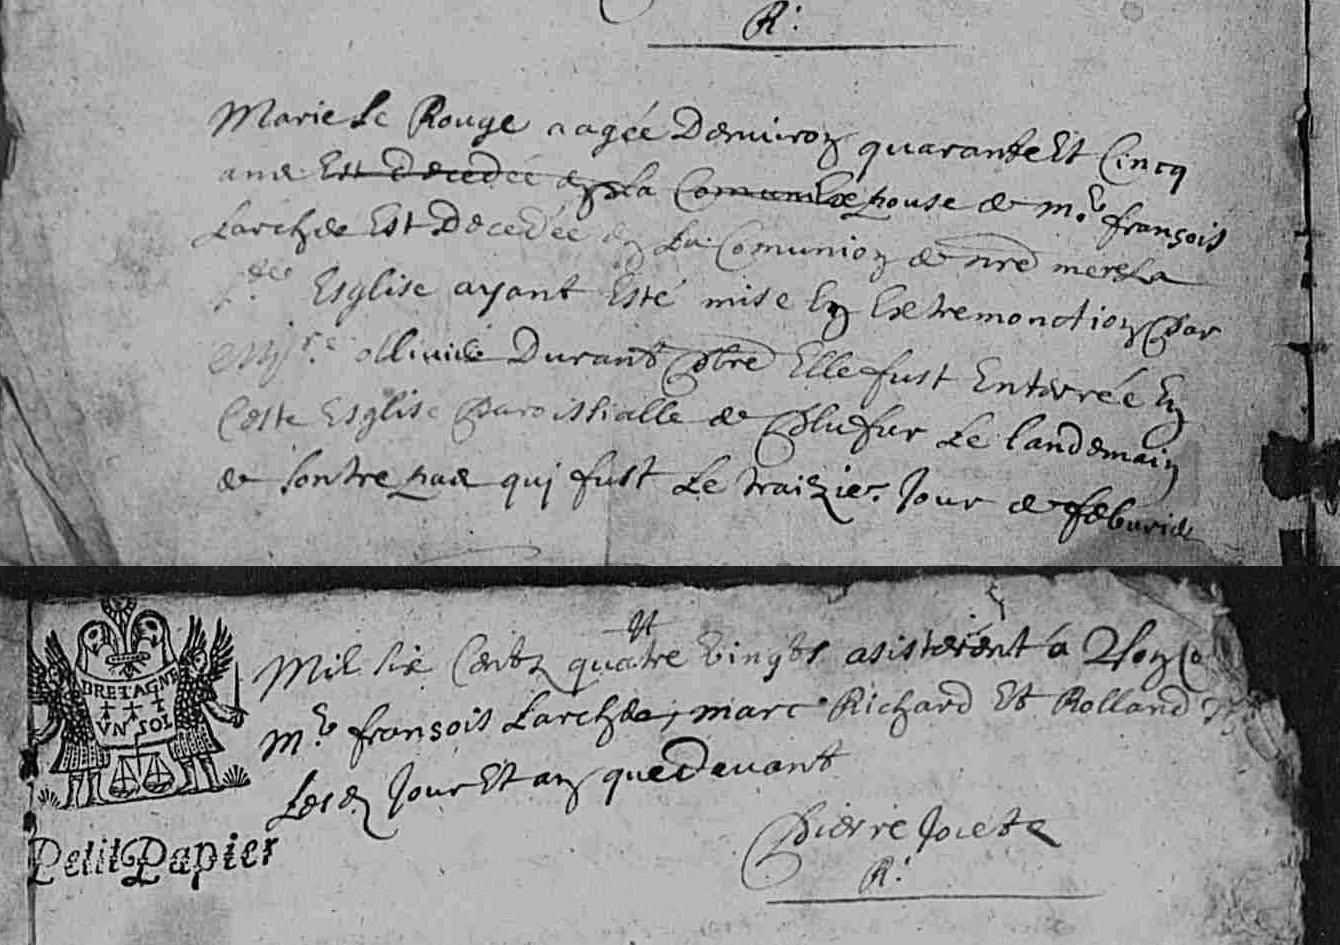 R:
Marie Le Rouge aagée Denviron quarante Et Cincq
ans Est Decedée en La Comunion Espouse de m.e françois
Larchde Est Decedée en La Comunion de nre mere La
s.te Esglise ayant Esté mise En Extremonction Par
ollivier Durant Pbre Elle fust Enterrée En
Ceste Esglise Paroissialle de Plufur Le landemain
de son trepas qui fust Le traizie. Jour de febvrie
Et
Mil six Cents quatre vingts asisterent a
m.e françois Larchde, marc Richard Et Rolland
Jour Et an que Devant
Pierre
R:
BRETAGNE
VN SOL
Petit Papier